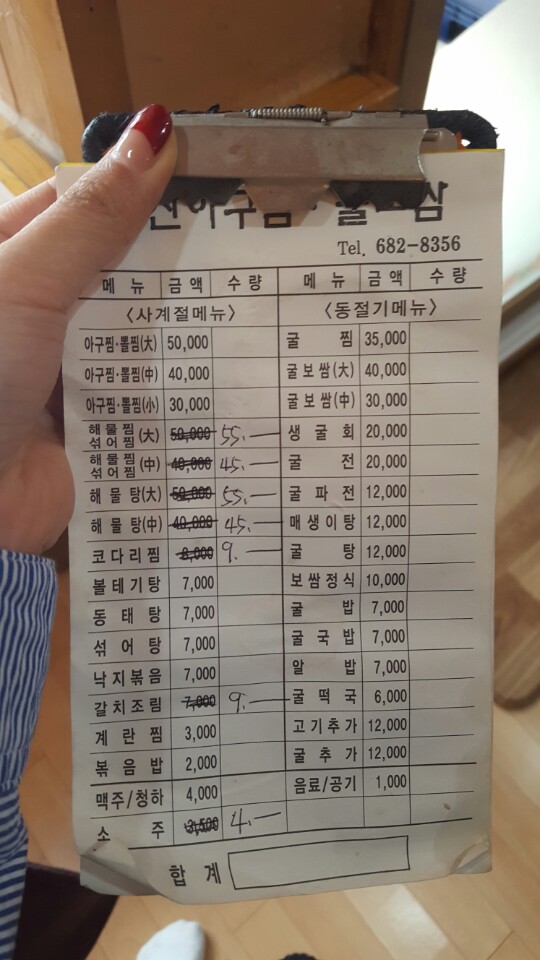 Tel. 682-8356
메뉴 금액 수량 메뉴 금액 수량
〈사계절메뉴〉 〈동절기메뉴〉
아구찜·뽈찜(大) 50,000 굴찜 35,000
아구찜·뽈찜(中) 40,000 굴보쌈(大) 40,000
아구찜·뽈찜(小) 30,000 굴보쌈(中) 30,000
해물찜 섞어찜 (大) 50,000 55.— 생굴회 20,000
해물찜 섞어찜 (中) 40,000 45.— 굴전 20,000
해물탕(大) 50,000 55.— 굴파전 12,000
해물탕(中) 40,000 45.— 매생이탕 12,000
코다리찜 8,000 9.— 굴탕 12,000
볼테기탕 7,000 보쌈정식 10,000
동태탕 7,000 굴밥 7,000
섞어탕 7,000 굴국밥 7,000
낙지볶음 7,000 알밥 7,000
갈치조림 7,000 9.— 굴떡국 6,000
계란찜 3,000 고기추가 12,000
볶음밥 2,000 굴추가 12,000
맥주/청하 4,000 음료/공기 1,000
소주 3,500 4.—
합계